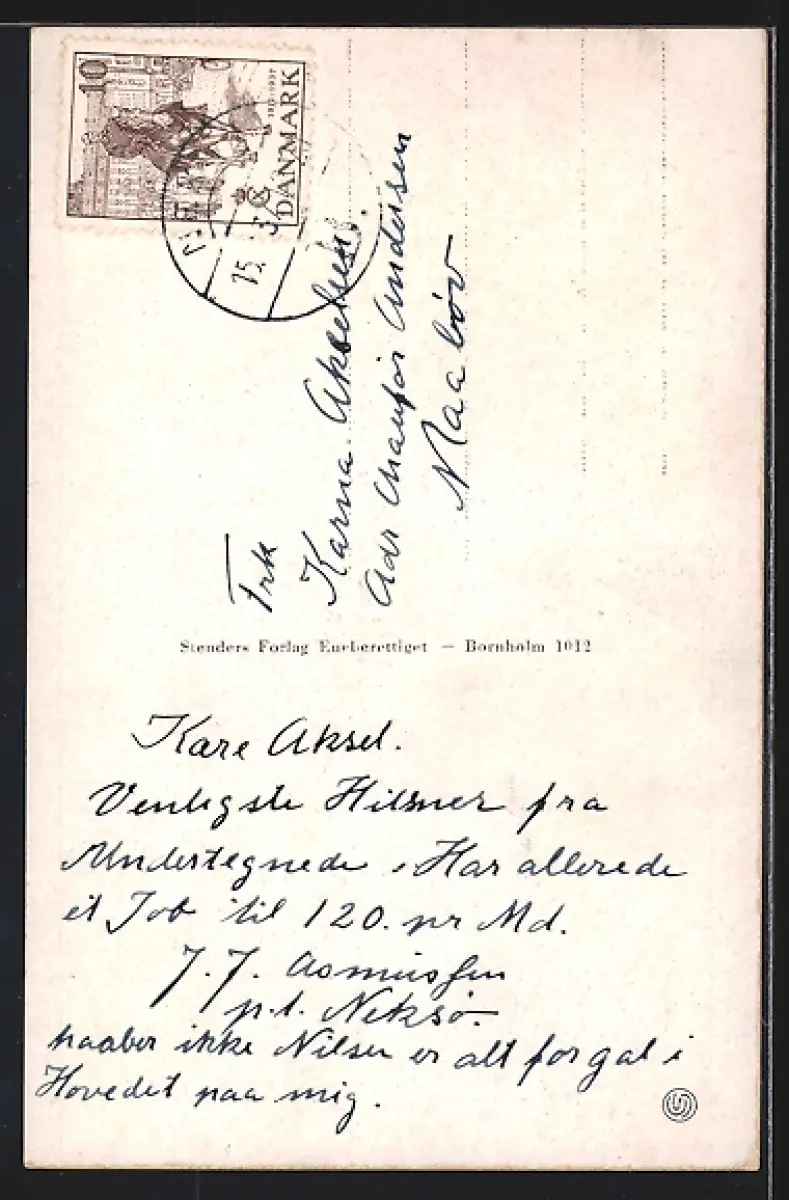 10
1912-1937
DANMARK
15.
Frk
Karna Akselsen.
Adr Chaufør Andersen
Maaløv
Stenders Forlag Eneberettiget — Bornholm 1012
Kære Aksel.
Venligste Hilsner fra
Undertegnede. Har allerede
et Job til 120. pr Md.
J. J. Asmussen
p.t. Neksø.
haaber ikke Nilsen er alt for gal i
Hovedet paa mig.